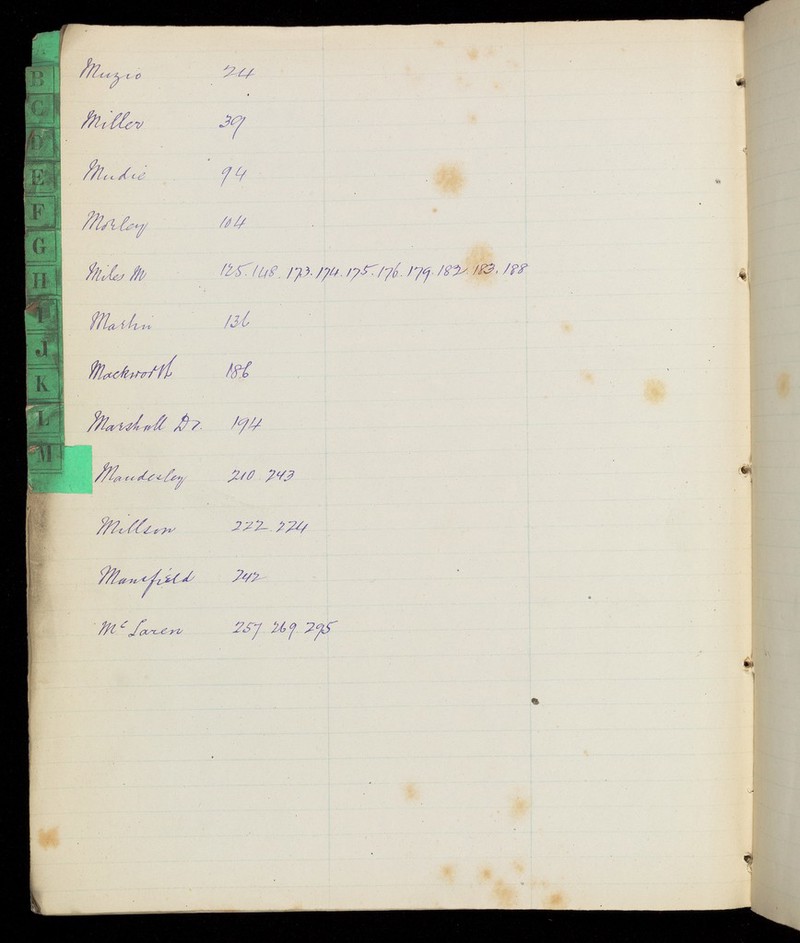 A
B
C
D
E
F
G
H
I
J
K
L
M
Muzio 24
Miller 39
Mudie 94
Morley 104
Miles M 125. 148. 173. 174. 175. 176. 179. 182. 183. 188
Martin 136
Mackworth 186
Marshall Dr. 194
Maudesley 210. 243
Millson 222. 224
Mansfield 242
Mc Laren 257. 269. 295